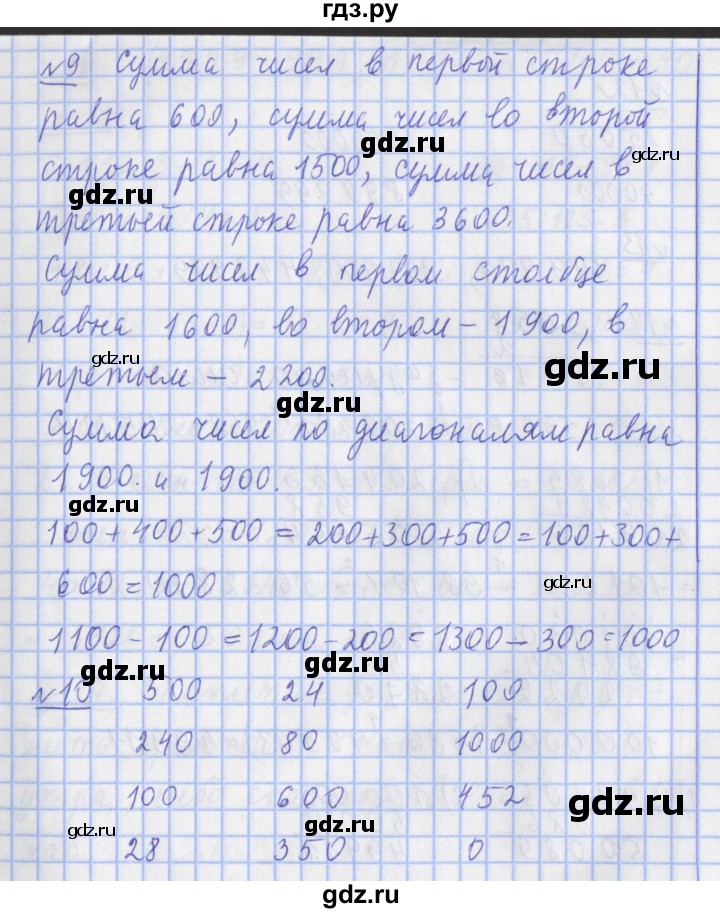 гдз.ру
№9 Сумма чисел в первой строке
равна 600, сумма чисел во второй
gdz.ru gdz.ru
строке равна 1500, сумма чисел в
gdz.ru
третьей строке равна 3600.
gdz.ru
Сумма чисел в первом столбце
равна 1600, во втором – 1900, в
gdz.ru gdz.ru
третьем – 2200.
gdz.ru
Сумма чисел по диагоналям равна
1900. и 1900.
gdz.ru gdz.ru
100 + 400 + 500 = 200+300+500 = 100+300+
600 = 1000
gdz.ru
1100 – 100 = 1200 – 200 = 1300 – 300 = 1000
gdz.ru gdz.ru
№10 500 24 100
240 80 1000
100 600 452
gdz.ru
gdz.ru gdz.ru
28 350 0
gdz.ru